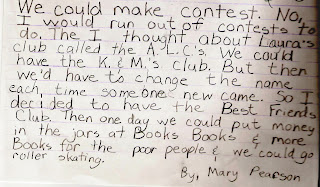 We could make contest. No,
I would run out of contests to
do. The I thought about Laura's
club called the A.L.C's. We could
have the K. & M.'s club. But then
we'd have to change the name
each time someone new came. So I
decided to have the Best Friends
Club. Then one day we could put money
in the jars at Books Books & more
Books for the poor people & we could go
roller skating.
By, Mary Pearson